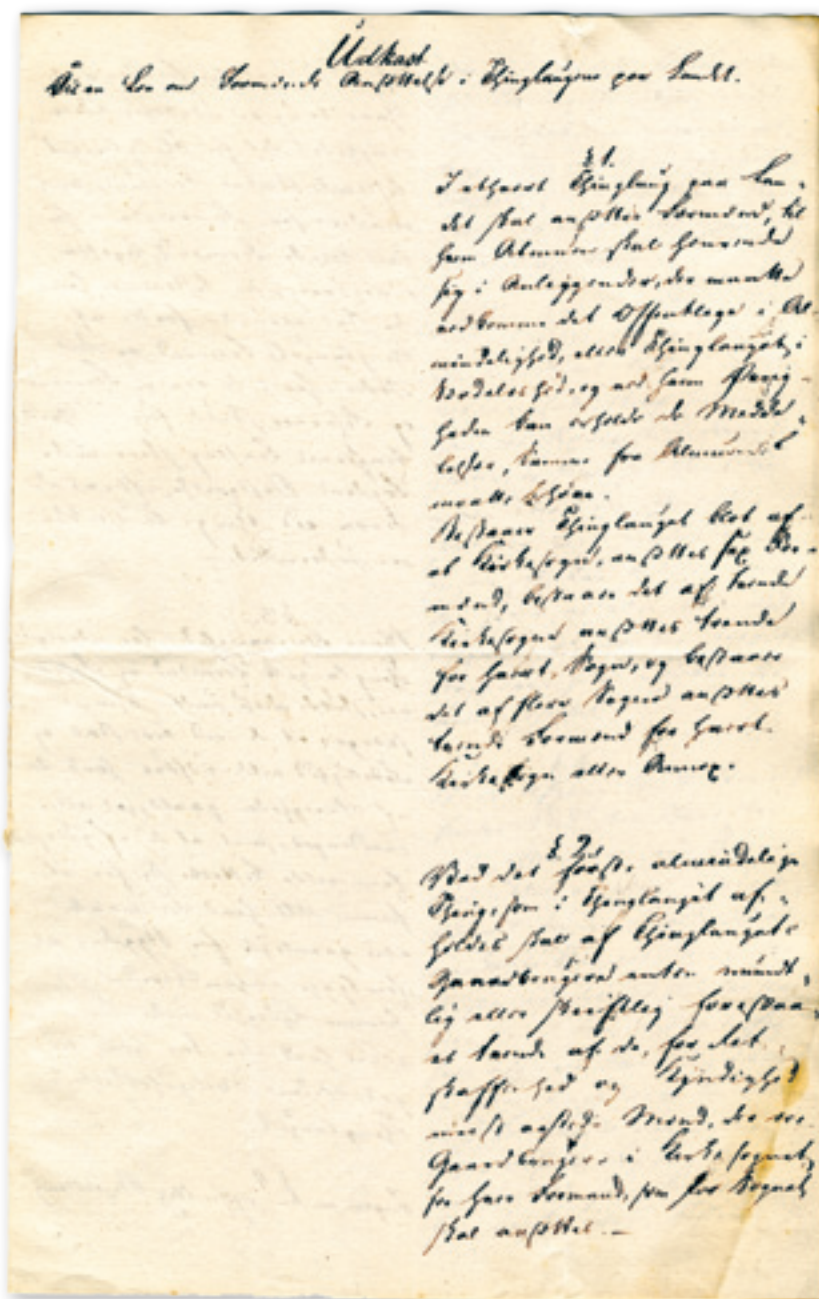 Udkast
til en Lov om Formænds Ansættelse i Thinglaugene paa Landet.
§ 1.
I ethvert Thinglaug paa Lan-
det skal ansættes Formænd, til
hvem Almuen skal henvende
sig i Anliggender, der maatte
vedkomme det Offentlige i Al-
mindelighed, eller Thinglauget i
Særdeleshed, og ved hvem Øvrig-
heden kan erholde de Meddel-
elser, samme fra Almuen
maatte behøve.
Bestaaer Thinglauget blot af
et Kirkesogn, ansættes sex For-
mænd, bestaaer det af tvende
Kirkesogne ansættes trende
for hvert Sogn, og bestaaer
det af flere Sogne ansættes
tvende Formænd for hvert
Kirkesogn eller Annex.
§ 2.
Ved det første almindelige
Thing, som i Thinglauget af-
holdes skal af Thinglaugets
Gaardbrugere enten mundt-
lig eller skriftlig foreslaa-
es tvende af de, for Ret-
skaffenhed og Kyndighed
meest agtede Mænd, der ere
Gaardbrugere i Kirkesognet,
for hver Formand, som for Sognet
skal ansættes. —